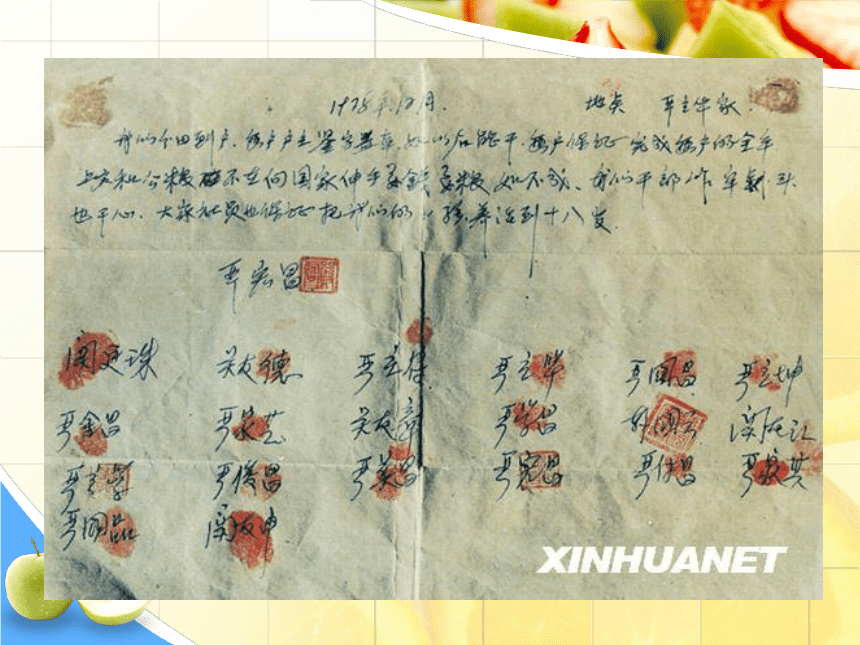 1978年12月. 地点 严立华家.
我们分田到户.每户户主鉴字盖章.如以后能干.每户保证完成每户的全年
上交和公粮.不在向国家伸手要钱要粮.如不成.我们干部作牢杀头
也干心.大家社员也保证把我们的小孩养活到十八岁.
严宏昌
关廷珠 关友德 严立符 严立华 严国昌 严立坤
严金昌 严家芝 关友章 严学昌 韩国云 关友江
严立学 严俊昌 严美昌 严宏昌 严付昌 严家其
严国品 关友申
XINHUANET